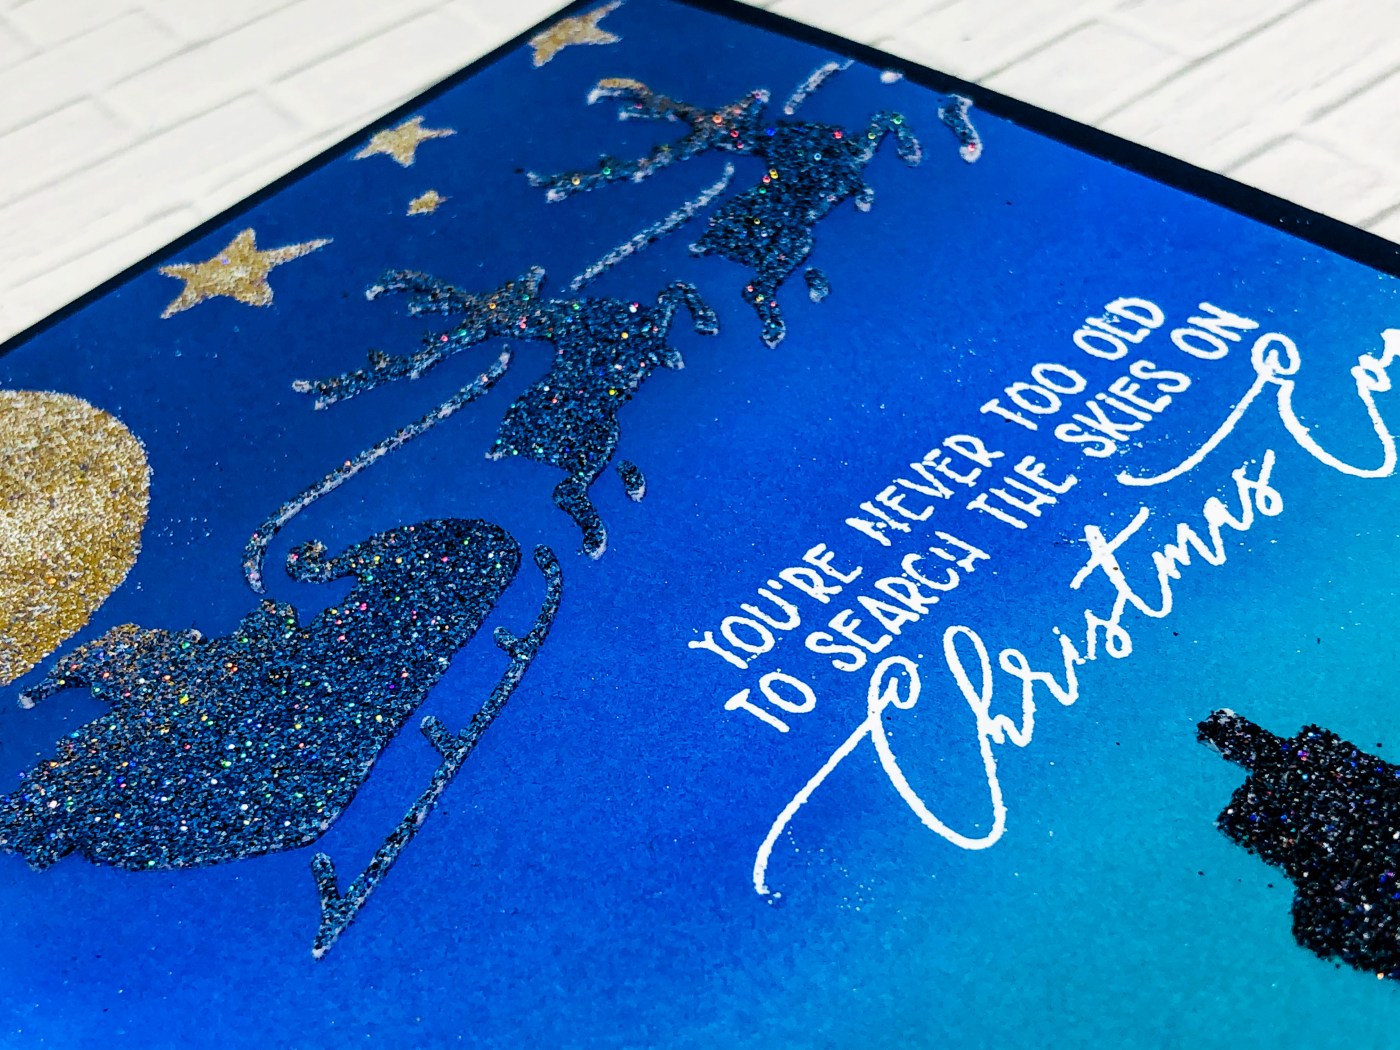 YOU'RE NEVER TOO OLD
TO SEARCH THE SKIES ON
Christmas